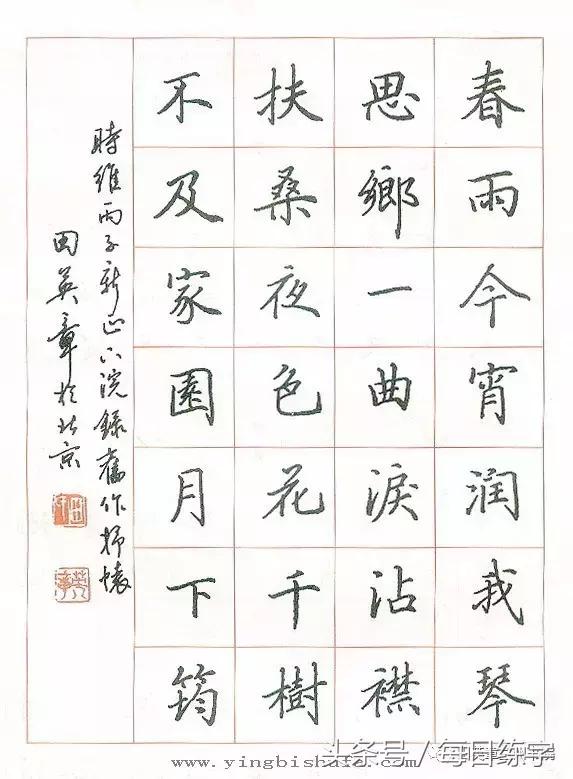 春雨今宵润我琴
思鄉一曲淚沾襟
扶桑夜色花千樹
不及家園月下筠
時維丙子新正下浣錄舊作抒懷
田英章於北京
头条号/每日练字
www.yingbishufa.com